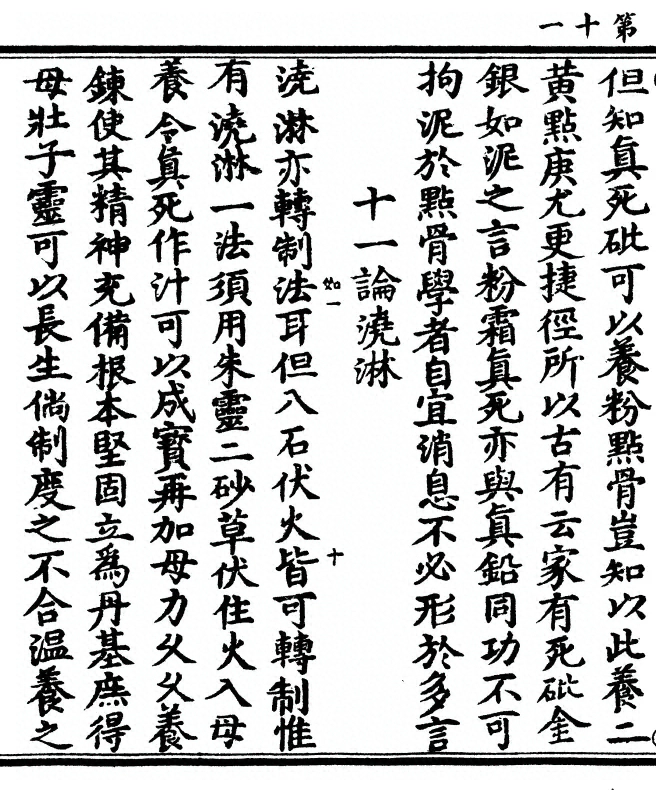 第十一
但知真死砒可以養粉點骨豈知以此養二
黃點庚尤更捷徑所以古有云家有死砒金
銀如泥之言粉霜真死亦與真鉛同功不可
拘泥於點骨學者自宜消息不必形於多言
十一論澆淋
澆淋亦轉制法耳但八石伏火皆可轉制惟
如一
十
有澆淋一法須用朱靈二砂草伏住火入母
養令真死作汁可以成寶再加母力久久養
鍊使其精神充備根本堅固立為丹基庶得
母壯子靈可以長生倘制度之不合温養之